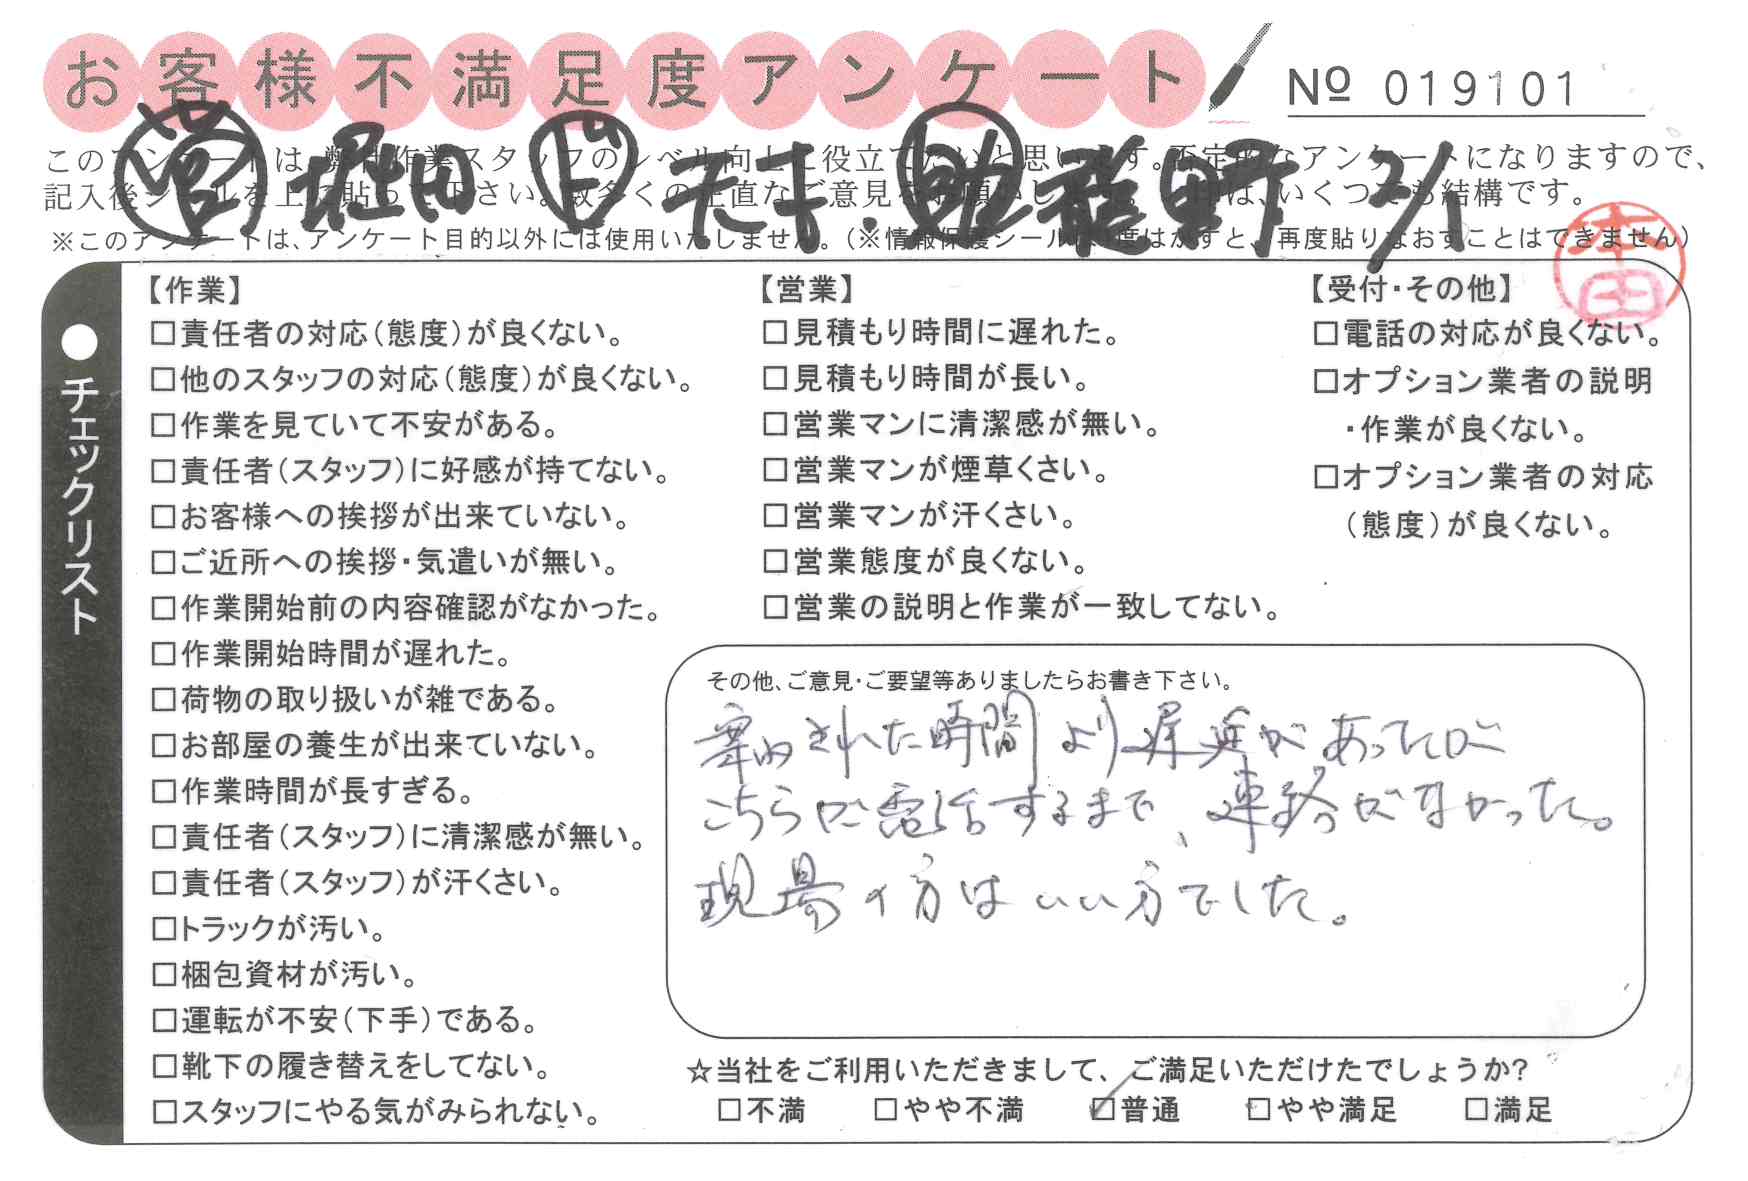 お客様不満足度アンケート
№ 019101
このアンケートは、弊社作業スタッフのレベル向上に役立てたいと思います。否定的なアンケートになりますので、
記入後シールを上に貼って下さい。数多くの正直なご意見をお願いします。レ印は、いくつでも結構です。
※このアンケートは、アンケート目的以外には使用いたしません。(※情報保護シールは1度はがすと、再度貼りなおすことはできません)
営 堀田 ド 天本・助 稚野 2/1
本田
●チェックリスト
【作業】
□責任者の対応(態度)が良くない。
□他のスタッフの対応(態度)が良くない。
□作業を見ていて不安がある。
□責任者(スタッフ)に好感が持てない。
□お客様への挨拶が出来ていない。
□ご近所への挨拶・気遣いが無い。
□作業開始前の内容確認がなかった。
□作業開始時間が遅れた。
□荷物の取り扱いが雑である。
□お部屋の養生が出来ていない。
□作業時間が長すぎる。
□責任者(スタッフ)に清潔感が無い。
□責任者(スタッフ)が汗くさい。
□トラックが汚い。
□梱包資材が汚い。
□運転が不安(下手)である。
□靴下の履き替えをしてない。
□スタッフにやる気がみられない。
【営業】
□見積もり時間に遅れた。
□見積もり時間が長い。
□営業マンに清潔感が無い。
□営業マンが煙草くさい。
□営業マンが汗くさい。
□営業態度が良くない。
□営業の説明と作業が一致してない。
【受付・その他】
□電話の対応が良くない。
□オプション業者の説明
・作業が良くない。
□オプション業者の対応
(態度)が良くない。
その他、ご意見・ご要望等ありましたらお書き下さい。
案内された時間より遅延があったが
こちらが電話するまで、連絡がなかった。
現場の方はいい方でした。
☆当社をご利用いただきまして、ご満足いただけたでしょうか?
□不満 □やや不満 ☑普通 □やや満足 □満足